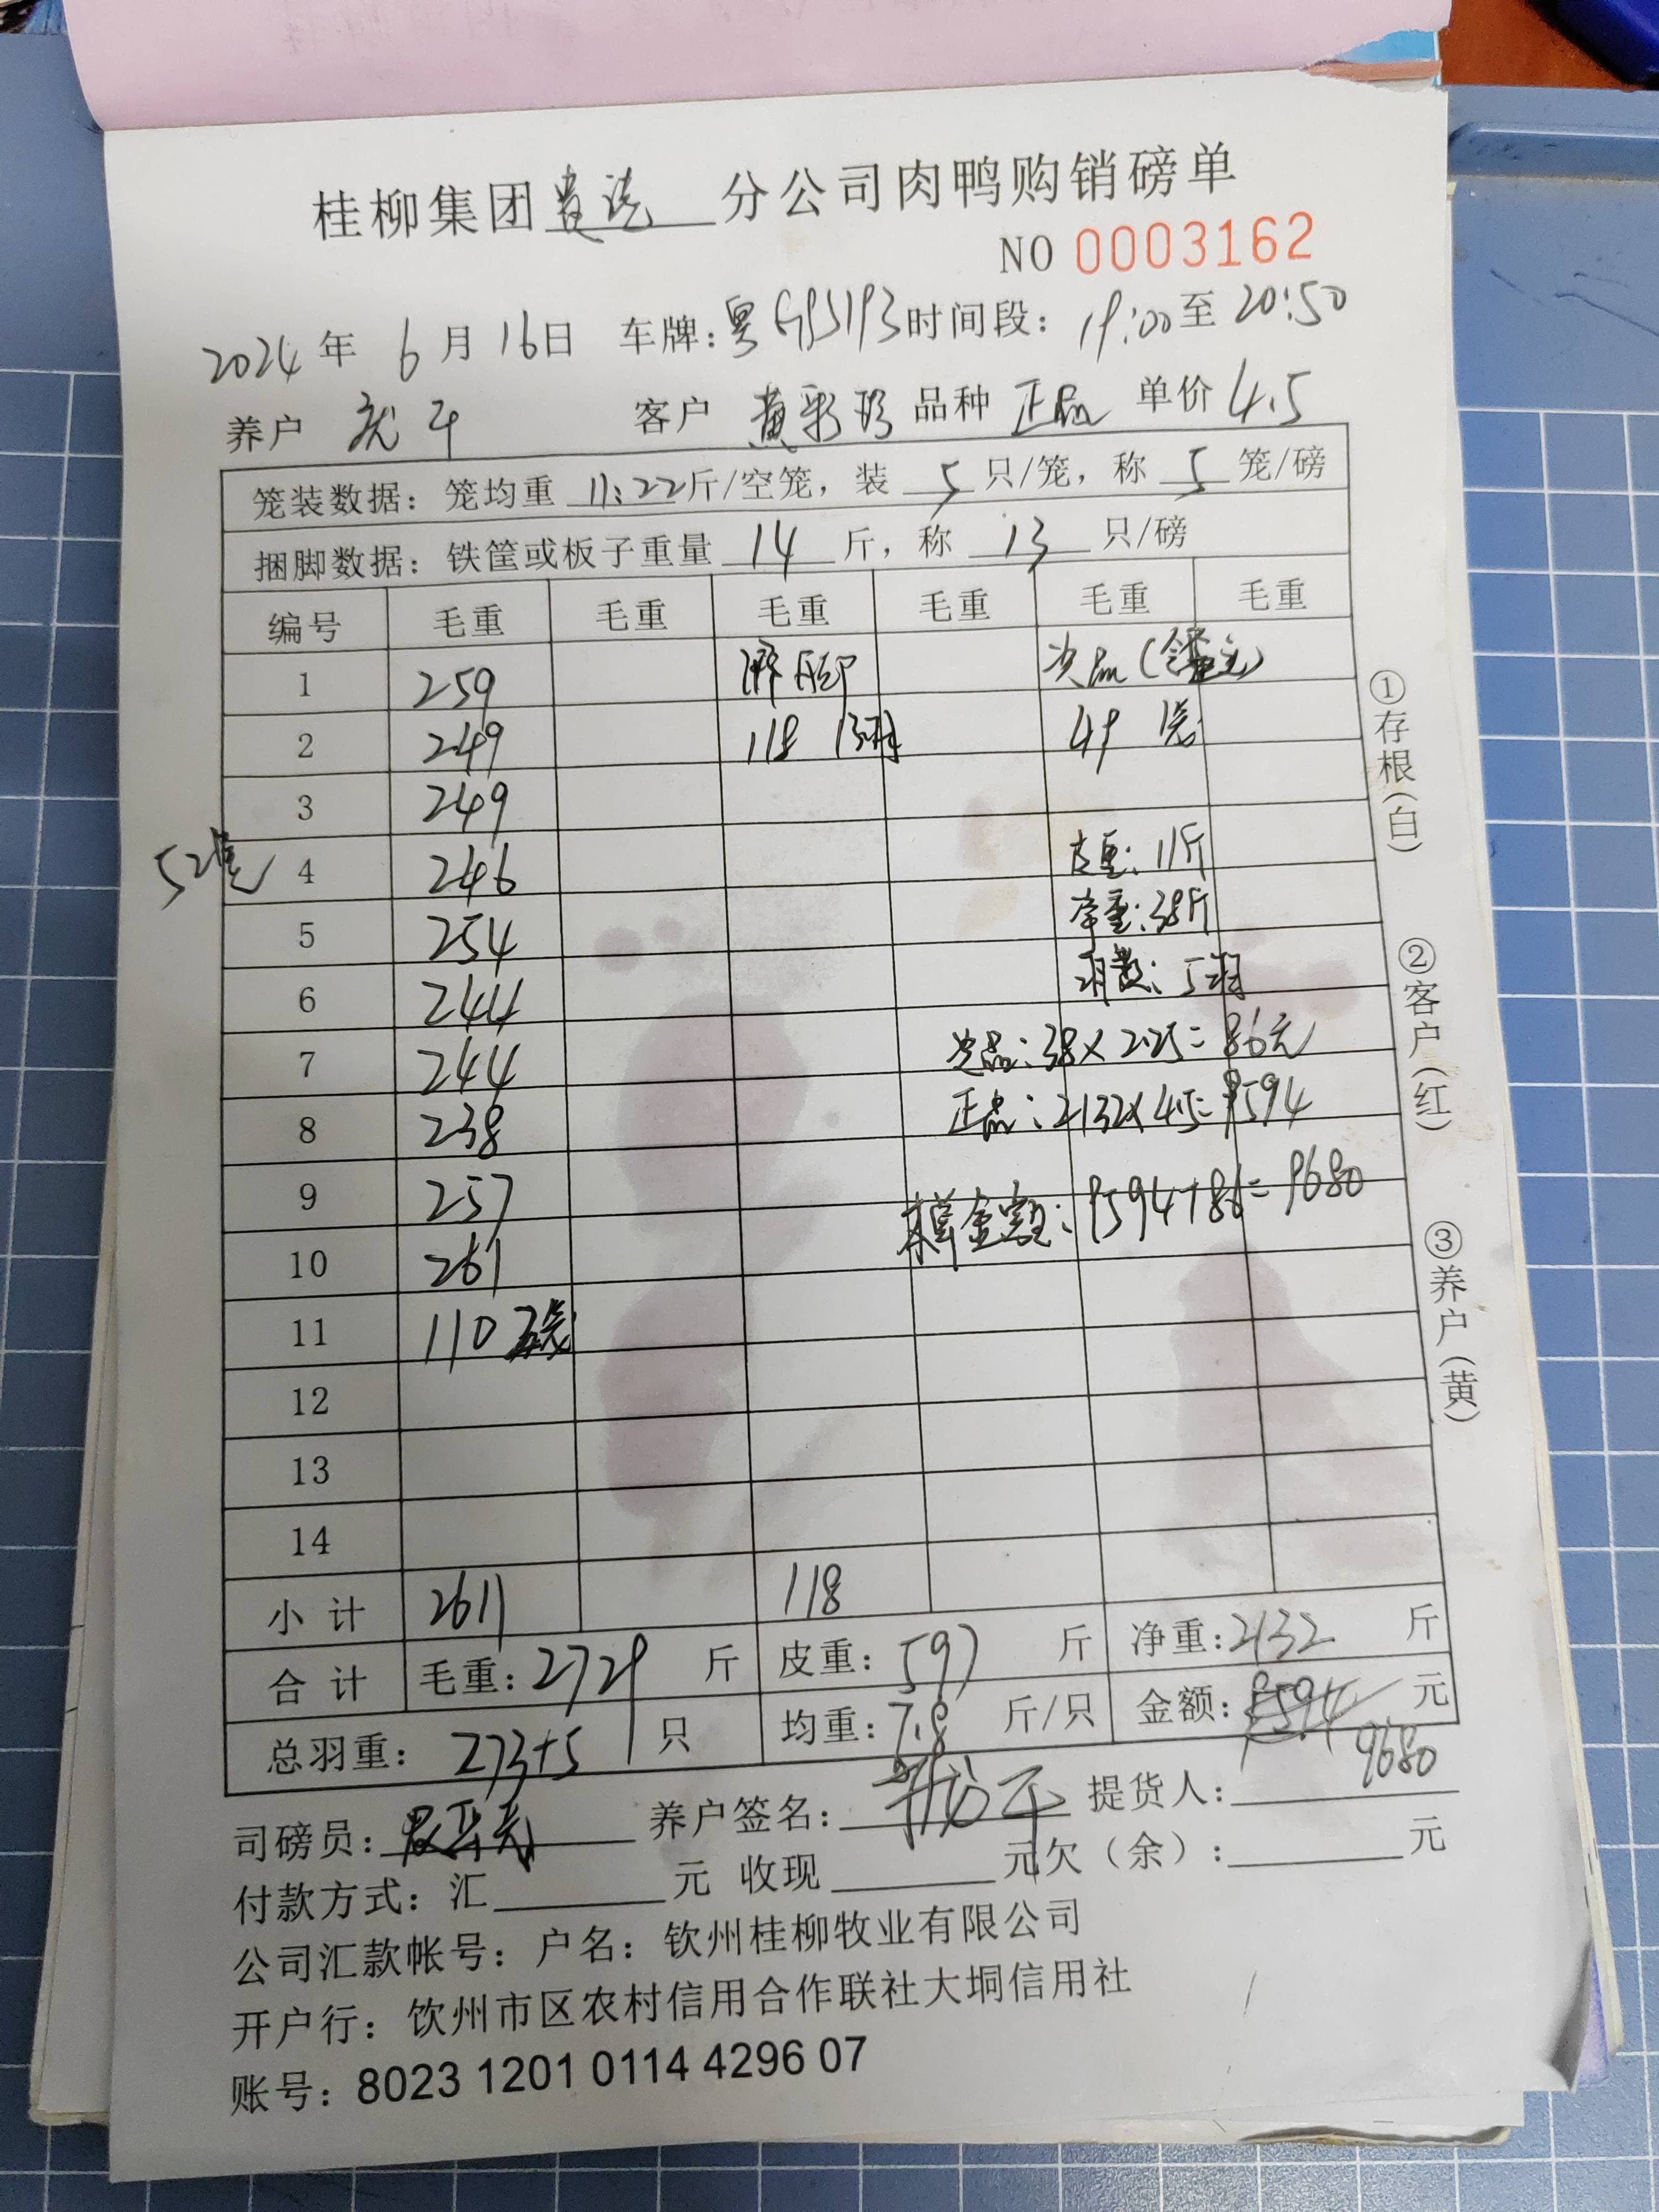 桂柳集团 分公司肉鸭购销磅单
NO 0003162
2024年 6月 16日 车牌:粤G95193 时间段: 19:00至20:50
养户 龙平 客户 黄彩珍 品种 正品 单价 4.5
笼装数据: 笼均重 11.22斤/空笼, 装 5 只/笼, 称 5 笼/磅
捆脚数据: 铁筐或板子重量 14 斤, 称 13 只/磅
编号 毛重 毛重 毛重 毛重 毛重 毛重
1 259 绑脚 次品
2 249 118 13羽 49 1笼
3 249
52笼 4 246 皮重: 11斤
5 254 净重: 38斤
6 244 羽数: 5羽
7 244 次品: 38×2.25=86元
8 238 正品: 2132×4.5=9594
9 257
10 261 本单金额: 9594+86=9680
11 110
12
13
14
小计 2611 118
合计 毛重: 2729 斤 皮重: 597 斤 净重: 2132 斤
总羽重: 273+5 只 均重: 7.8 斤/只 金额: 9594 元
9680
司磅员: 养户签名: 提货人:
付款方式: 汇 元 收现 元欠(余): 元
公司汇款帐号: 户名: 钦州桂柳牧业有限公司
开户行: 钦州市区农村信用合作联社大垌信用社
账号: 8023 1201 0114 4296 07
①存根(白)
②客户(红)
③养户(黄)